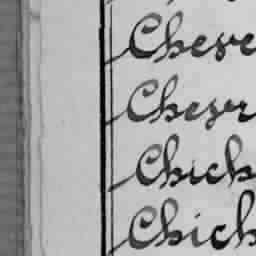 Cheve
Cheyr
Chick
Chick